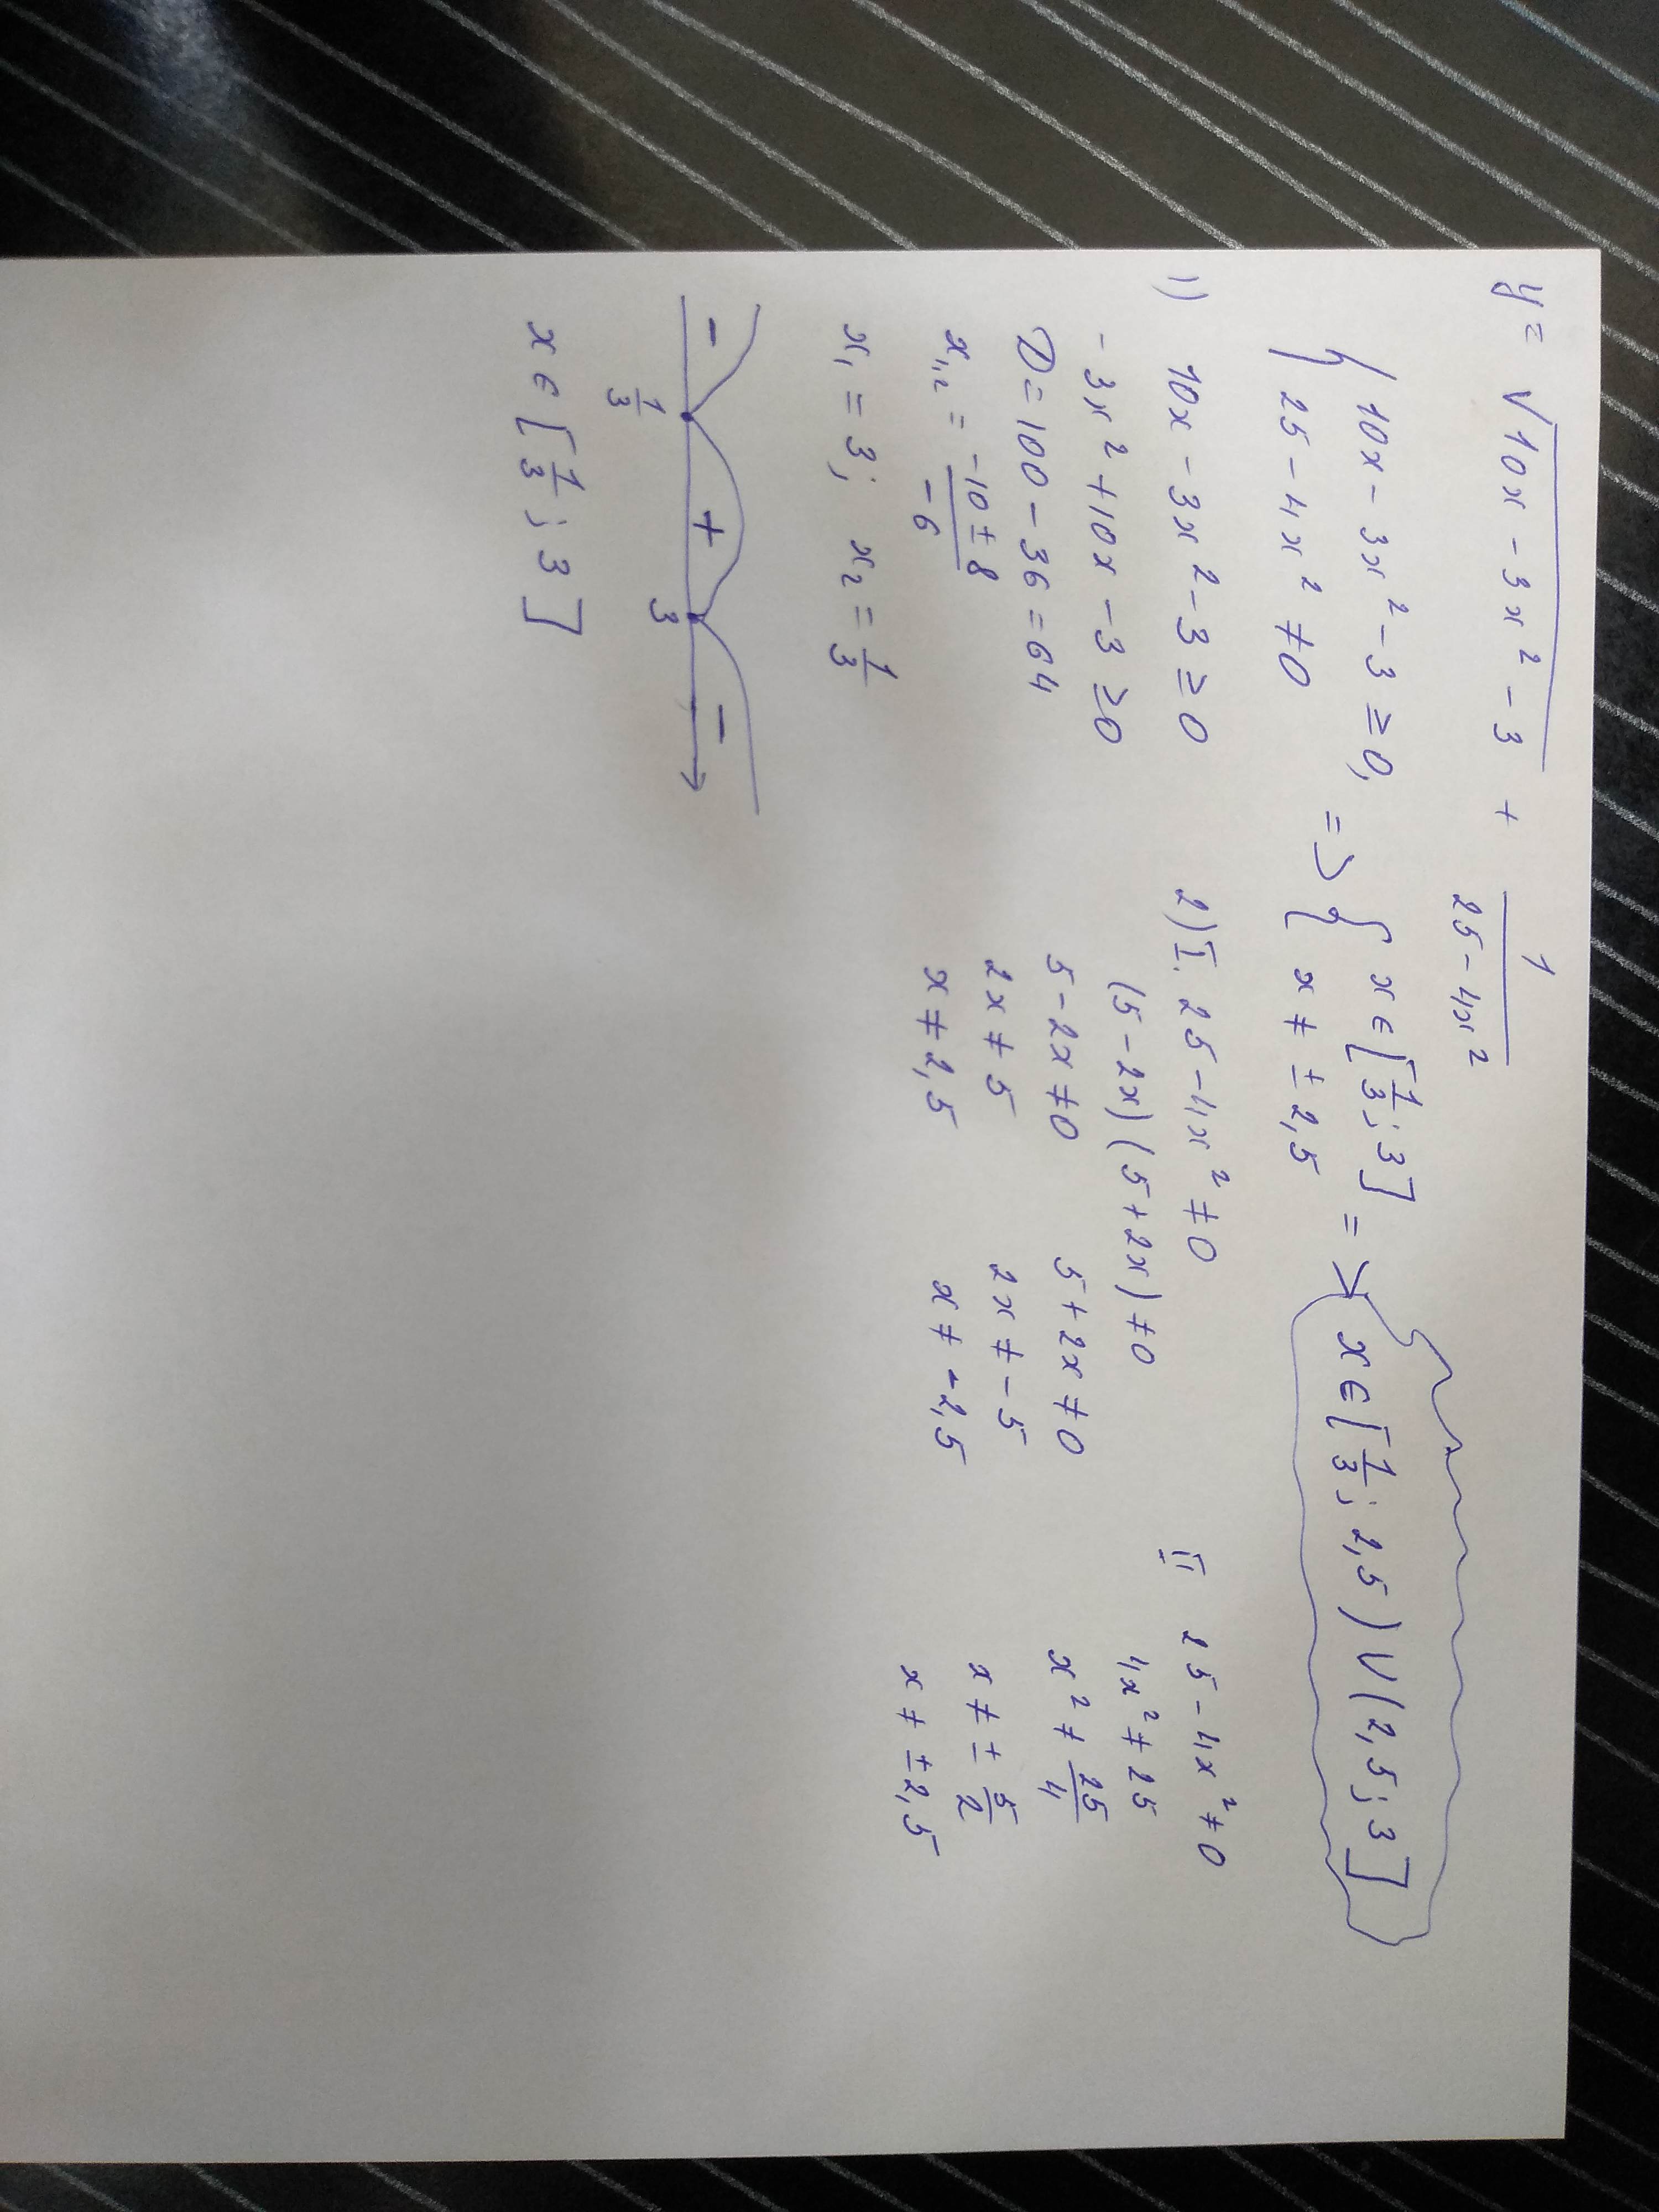 y = √(10x - 3x² - 3) + 1/(25 - 4x²)
{ 10x - 3x² - 3 ≥ 0, 25 - 4x² ≠ 0 => { x ∈ [1/3; 3] x ≠ ± 2,5 => x ∈ [1/3; 2,5) ∪ (2,5; 3]
1) 10x - 3x² - 3 ≥ 0
- 3x² + 10x - 3 ≥ 0
D = 100 - 36 = 64
x₁,₂ = (-10 ± 8)/(-6)
x₁ = 3; x₂ = 1/3
- + -
1/3 3
x ∈ [1/3; 3]
2) I. 25 - 4x² ≠ 0
(5 - 2x)(5 + 2x) ≠ 0
5 - 2x ≠ 0 5 + 2x ≠ 0
2x ≠ 5 2x ≠ - 5
x ≠ 2,5 x ≠ -2,5
II 25 - 4x² ≠ 0
4x² ≠ 25
x² ≠ 25/4
x ≠ ± 5/2
x ≠ ± 2,5